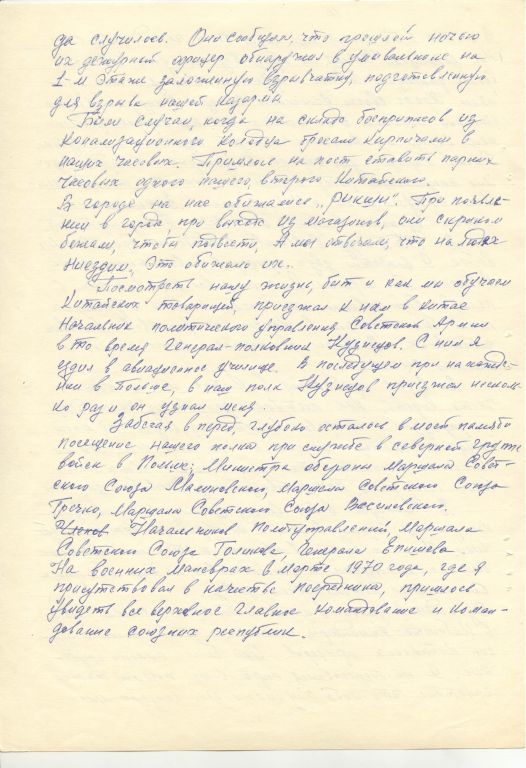 да случилось. Они сообщили, что прошлой ночью
их дежурный офицер обнаружил в умывальнике на
1-м этаже заложенную взрывчатку, подготовленную
для взрыва нашей казармы.
Были случаи, когда на складе боеприпасов из
канализационного колодца бросали кирпичами в
наших часовых. Пришлось на пост ставить парных
часовых одного нашего, второго китайского.
В городе на нас обижались „рикши". При появле-
нии в городе, при выходе из магазинов, они скриком
бежали, чтобы подвезти, А мы отвечали, что на людях
ниездим, это обижало их.
Посмотреть нашу жизнь, быт и как мы обучаем
китайских товарищей, приезжал к нам в Китае
Начальник политического управления Советской Армии
в то время Генерал-полковник Кузнецов. С ним я
ездил в авиационное училище. В последущем при нахожде-
нии в Польше, в наш полк Кузнецов приезжал несколь-
ко раз и он узнал меня.
Забегая в перед, глубоко осталось в моей памяти
посещение нашего полка при службе в северной группе
войск в Польше; Министра обороны Маршала Совет-
ского Союза Малиновского, Маршала Советского Союза
Гречко, Маршала Советского Союза Василевского.
Начальников Политуправлений, Маршала
Советского Союза Голикова, Генерала Епишева
На военных маневрах в марте 1970 года, где я
присутствовал в качестве посредника, пришлось
увидеть все верховное главное командование и коман-
дование союзных республик.